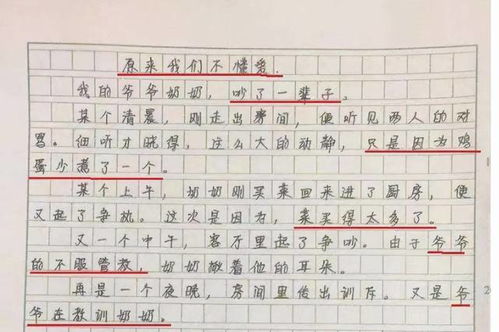 原来我们不懂爱.
我的爷爷奶奶，吵了一辈子。
某个清晨，刚走出房间，便听见两人的对
骂。细听才晓得，这么大的动静，只是因为鸡
蛋少煮了一个。
某个上午，奶奶刚买菜回来进了厨房，便
又起了争执。这次是因为，菜买得太多了。
又一个中午，客厅里起了争吵。由于爷爷
的不服管教，奶奶揪着他的耳朵。
再是一个夜晚，房间里传出训斥。又是爷
爷在教训奶奶。
1
2